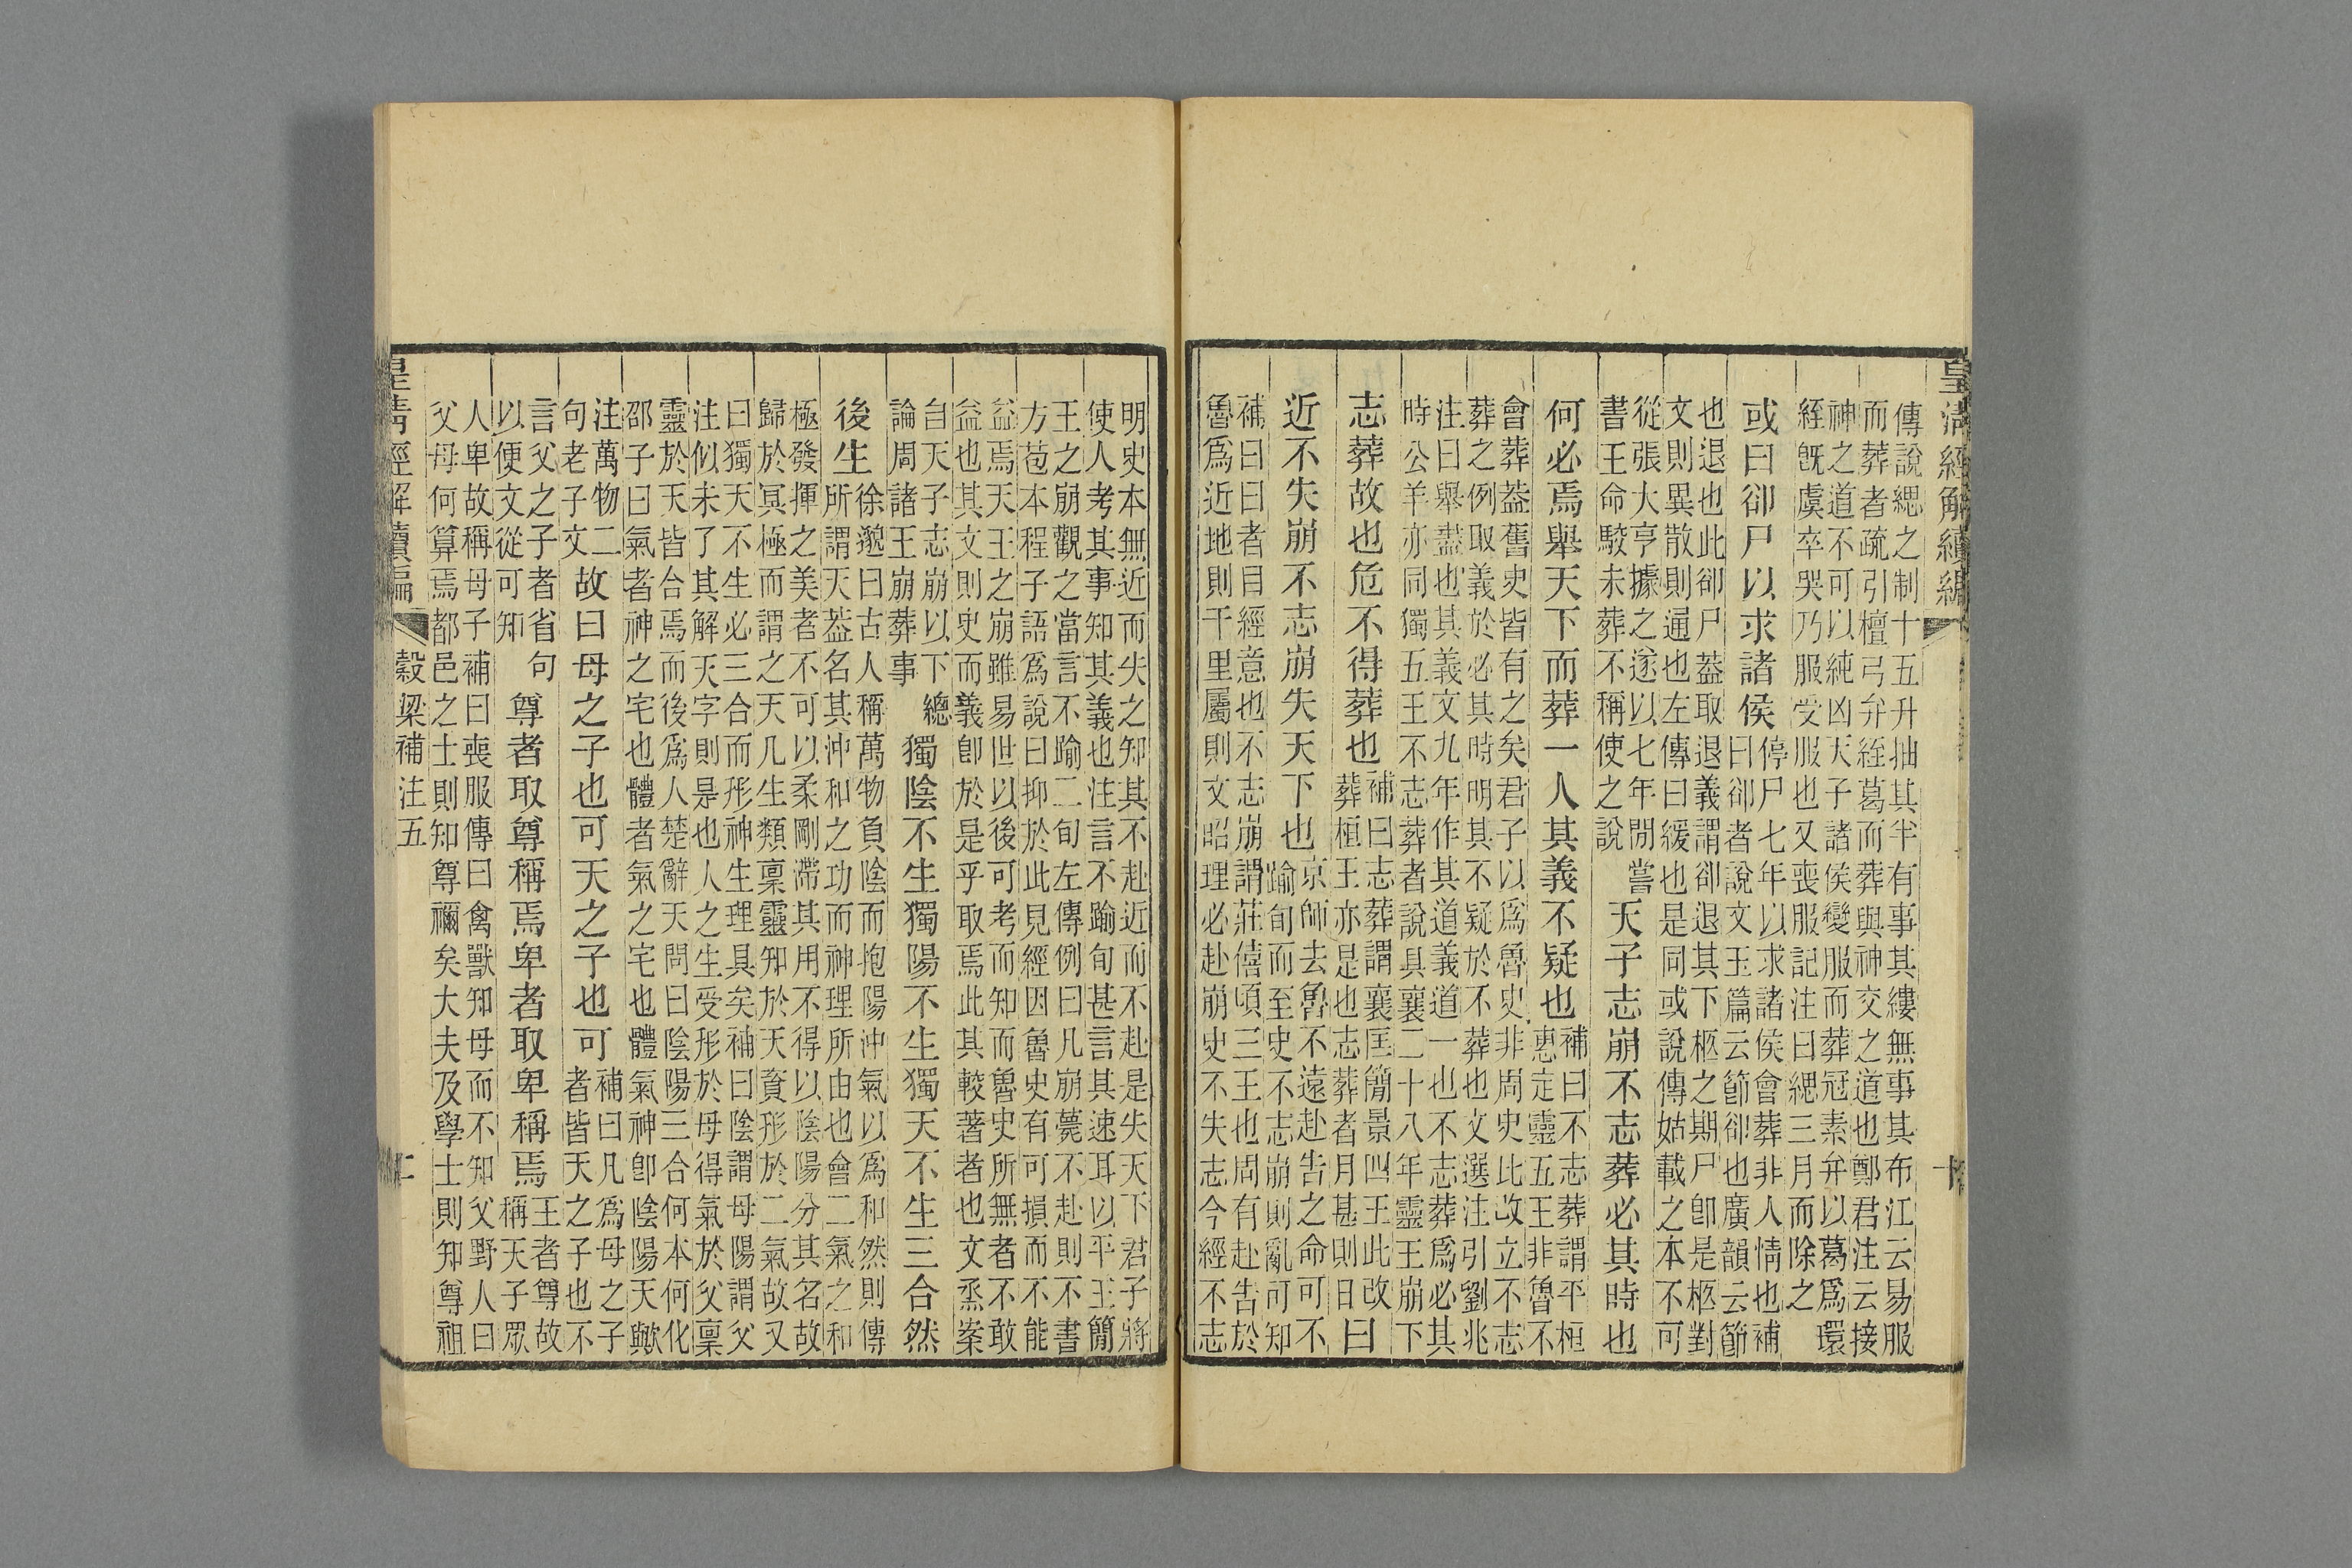 皇清經解續編
傳說緦之制十五升抽其半有事其縷無事其布江云易服
而葬者疏引檀弓弁絰葛而葬與神交之道也鄭君注云接
神之道不可以純凶天子諸侯變服而葬冠素弁以葛爲環
絰旣虞卒哭乃服受服也又喪服記注曰緦三月而除之
或曰卻尸以求諸侯
停尸七年以求諸侯會葬非人情也補
曰卻者說文玉篇云節卻也廣韻云節
也退也此卻尸葢取退義謂卻退其下柩之期尸卽是柩對
文則異散則通也左傳曰緩也是同或說傳姑載之本不可
從張大亨據之遂以七年閒嘗
書王命駿未葬不稱使之說
天子志崩不志葬必其時也
何必焉舉天下而葬一人其義不疑也
補曰不志葬謂平桓
惠定靈五王非魯不
會葬葢舊史皆有之矣君子以爲魯史非周史此改立不志
葬之例取義於必其時明其不疑於不葬也文選注引劉兆
注曰舉盡也其義文九年作其道義道一也不志葬爲必其
時公羊亦同獨五王不志葬者說具襄二十八年靈王崩下
志葬故也危不得葬也
補曰志葬謂襄匡簡景四王此改
葬桓王亦是也志葬者月甚則日
曰
近不失崩不志崩失天下也
京師去魯不遠赴告之命可不
踰旬而至史不志崩則亂可知
補曰曰者目經意也不志崩謂莊僖頃三王也周有赴告於
魯爲近地則千里屬則文昭理必赴崩史不失志今經不志
明史本無近而失之知其不赴近而不赴是失天下君子將
使人考其事知其義也注言不踰旬甚言其速耳以平王簡
王之崩觀之當言不踰二旬左傳例曰凡崩薨不赴則不書
方苞本程子語爲說曰抑於此見經因魯史有可損而不能
益焉天王之崩雖易世以後可考而知而魯史所無者不敢
益也其文則史而義卽於是乎取焉此其較著者也文烝案
自天子志崩以下總
論周諸王崩葬事
獨陰不生獨陽不生獨天不生三合然
後生
徐邈曰古人稱萬物負陰而抱陽沖氣以爲和然則傳
所謂天葢名其沖和之功而神理所由也會二氣之和
極發揮之美者不可以柔剛滯其用不得以陰陽分其名故
歸於冥極而謂之天凡生類稟靈知於天資形於二氣故又
曰獨天不生必三合而形神生理具矣補曰陰謂母陽謂父
注似未了其解天字則是也人之生受形於母得氣於父稟
靈於天皆合焉而後爲人楚辭天問曰陰陽三合何本何化
邵子曰氣者神之宅也體者氣之宅也體氣神卽陰陽天歟
注萬物二
句老子文
故曰母之子也可天之子也可
補曰凡爲母之子
者皆天之子也不
言父之子者省句
以便文從可知
尊者取尊稱焉卑者取卑稱焉
王者尊故
稱天子眾
人卑故稱母子補曰喪服傳曰禽獸知母而不知父野人曰
父母何算焉都邑之士則知尊禰矣大夫及學士則知尊祖
皇清經解續編
穀梁補注五